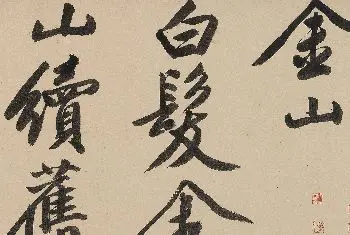 金山
白髮金
山續舊